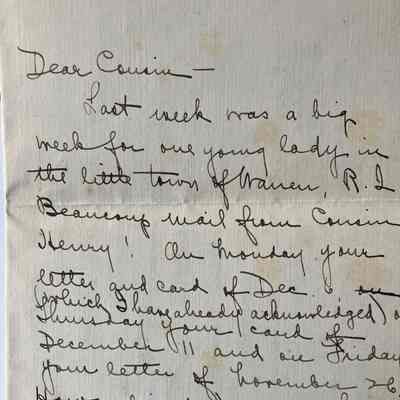 Dear Cousin —
Last week was a big
week for one young lady in
the little town of Warren, R.I
Beaucoup mail from Cousin
Henry! On Monday your
letter and card of Dec. 6 on
(which I have already acknowledged)
Thursday your card of
December 11 and on Friday
your letter of November 26